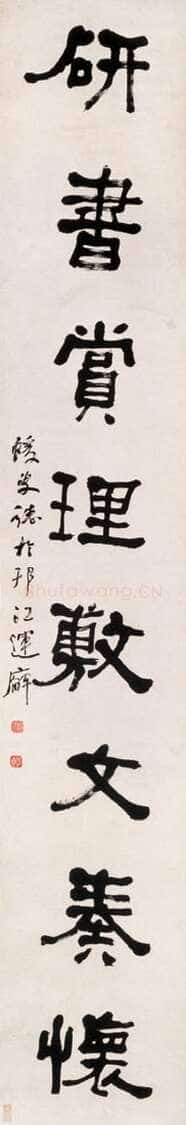 研書賞理敷文奏懷
蝯叟誌於邗江運廨
shufawang.CN